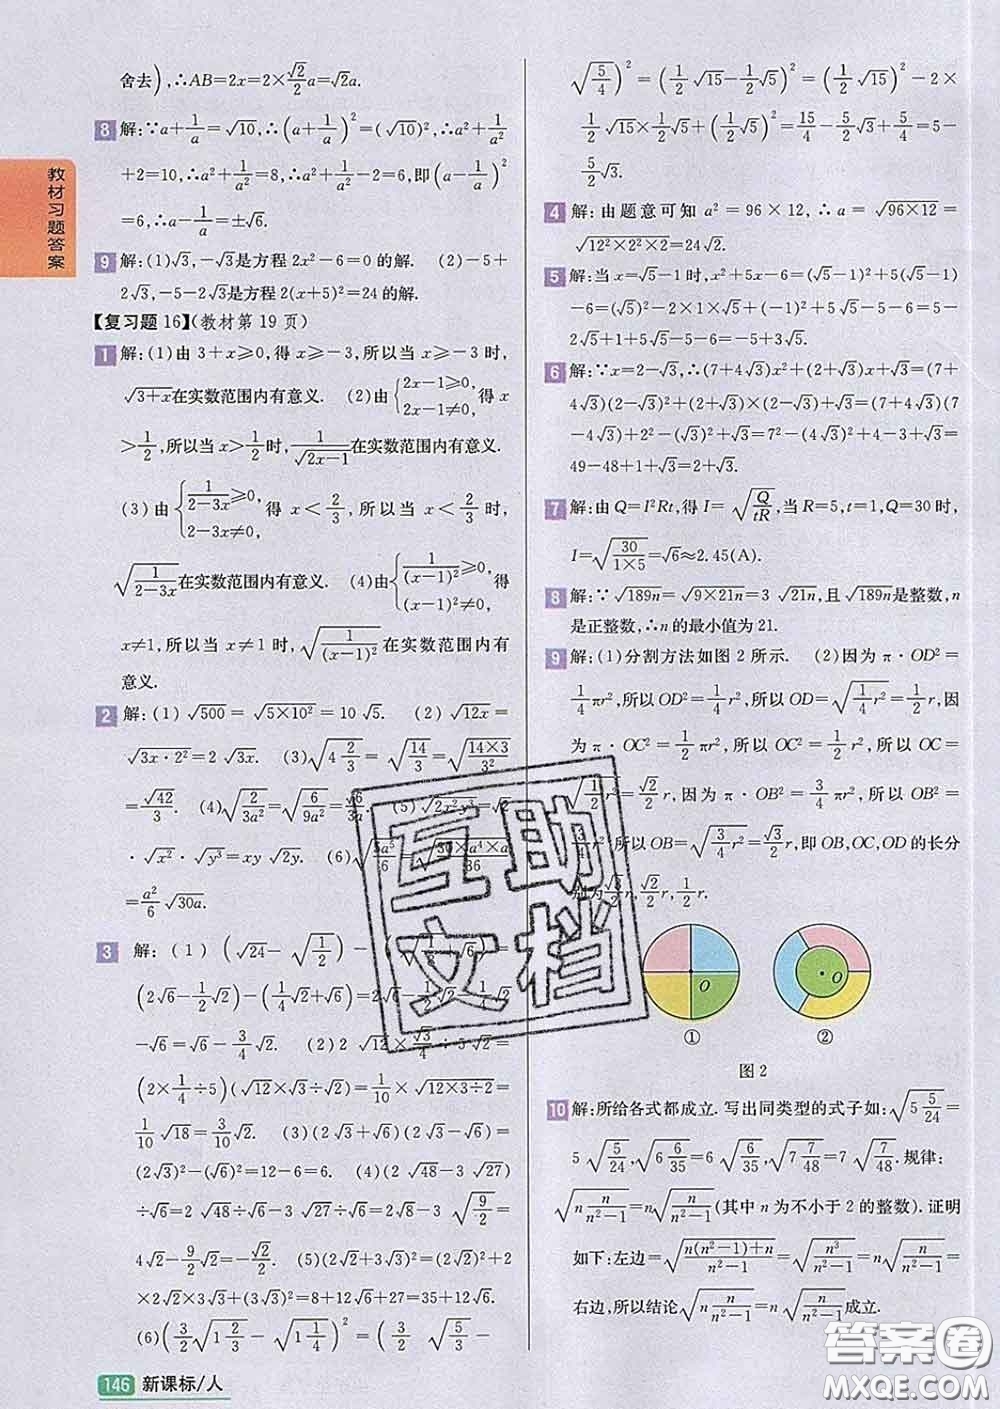 教材习题答案
舍去),∴AB=2x=2×√2/2 a=√2a.
8 解:∵a+1/a=√10,∴(a+1/a)²=(√10)²,∴a²+1/a²
+2=10,∴a²+1/a²=8,∴a²+1/a²-2=6,即(a-1/a)²
=6,∴a-1/a=±√6.
9 解:(1)√3,-√3是方程2x²-6=0的解. (2)-5+
2√3,-5-2√3是方程2(x+5)²=24的解.
【复习题16】(教材第19页)
1 解:(1)由3+x≥0,得x≥-3,所以当x≥-3时,
√(3+x)在实数范围内有意义. (2)由{2x-1≥0, 2x-1≠0,得x
>1/2,所以当x>1/2时,1/√(2x-1)在实数范围内有意义.
(3)由{1/(2-3x)≥0, 2-3x≠0,得x<2/3,所以当x<2/3时,
√(1/(2-3x))在实数范围内有意义. (4)由{1/(x-1)²≥0, (x-1)²≠0,得
x≠1,所以当x≠1时,√(1/(x-1)²)在实数范围内有
意义.
2 解:(1)√500=√(5×10²)=10√5. (2)√(12x)=
√(3x·2²)=2√(3x). (3)√(4 2/3)=√(14/3)=√((14×3)/3²)
=√42/3. (4)√(2/(3a²))=√(6/(9a²))=√6/(3a). (5)√(2x²y³)=√2
·√x²·√y³=xy√(2y). (6)√(5a⁵/6)=√((30×a⁴×a)/36)
=a²/6 √(30a).
3 解:(1)(√24-√(1/2))-(√6)=
(2√6-1/2√2)-(1/4√2+√6)=2√6-1/2√2-1/4√2
-√6=√6-3/4√2. (2)2√12×√3/4÷5√2=
(2×1/4÷5)(√12×√3÷√2)=1/10×√(12×3÷2)=
1/10√18=3/10√2. (3)(2√3+√6)(2√3-√6)=
(2√3)²-(√6)²=12-6=6. (4)(2√48-3√27)
÷√6=2√48÷√6-3√27÷√6=2√8-3√(9/2)=
4√2-9/2√2=-√2/2. (5)(2√2+3√3)²=(2√2)²+2
×2√2×3√3+(3√3)²=8+12√6+27=35+12√6.
(6)(3/2√(1 2/3)-√(1 1/4))²=(3/2√(5/3)-
√(5/4))²=(1/2√15-1/2√5)²=(1/2√15)²-2×
1/2√15×1/2√5+(1/2√5)²=15/4-5/2√3+5/4=5-
5/2√3.
4 解:由题意可知a²=96×12,∴a=√(96×12)=
√(12²×2²×2)=24√2.
5 解:当x=√5-1时,x²+5x-6=(√5-1)²+5(√5-1)
-6=(√5)²-2×√5×1+(-1)²+5√5-5-6=5-
2√5+1+5√5-5-6=-5+3√5.
6 解:∵x=2-√3,∴(7+4√3)x²+(2+√3)x+√3=(7+
4√3)(2-√3)²+(2+√3)×(2-√3)+√3=(7+4√3)(7
-4√3)+2²-(√3)²+√3=7²-(4√3)²+4-3+√3=
49-48+1+√3=2+√3.
7 解:由Q=I²Rt,得I=√(Q/tR),当R=5,t=1,Q=30时,
I=√(30/(1×5))=√6≈2.45(A).
8 解:∵√(189n)=√(9×21n)=3√(21n),且√(189n)是整数,n
是正整数,∴n的最小值为21.
9 解:(1)分割方法如图2所示. (2)因为π·OD²=
1/4πr²,所以OD²=1/4r²,所以OD=√(1/4r²)=1/2r,因
为π·OC²=1/2πr²,所以OC²=1/2r²,所以OC=
√(1/2)r=√2/2r,因为π·OB²=3/4πr²,所以OB²=
3/4r²,所以OB=√(3/4r²)=√3/2r,即OB,OC,OD的长分
别为√3/2r,√2/2r,1/2r.
O O
① ②
图2
10 解:所给各式都成立.写出同类型的式子如:√(5 5/24)=
5√(5/24),√(6 6/35)=6√(6/35),√(7 7/48)=7√(7/48).规律:
√(n n/(n²-1))=n√(n/(n²-1))(其中n为不小于2的整数).证明
如下:左边=√((n(n²-1)+n)/(n²-1))=√(n³/(n²-1))=n√(n/(n²-1))=
右边,所以结论√(n n/(n²-1))=n√(n/(n²-1))成立.
互助
文档
146 新课标/人
答案圈
MXQE.COM